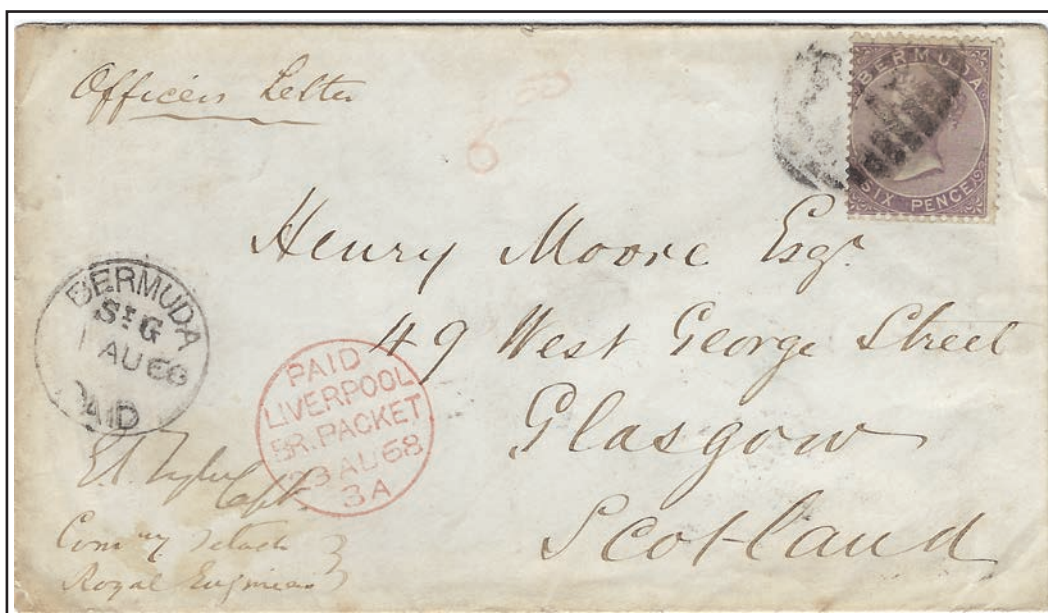 Officers Letter
BERMUDA
SIX PENCE
Henry Moore Esqr
49 West George Street
Glasgow
Scotland
BERMUDA
St G
AU 68
PAID
PAID
LIVERPOOL
BR. PACKET
23 AU 68
3A
Capt.
Royal Engineers